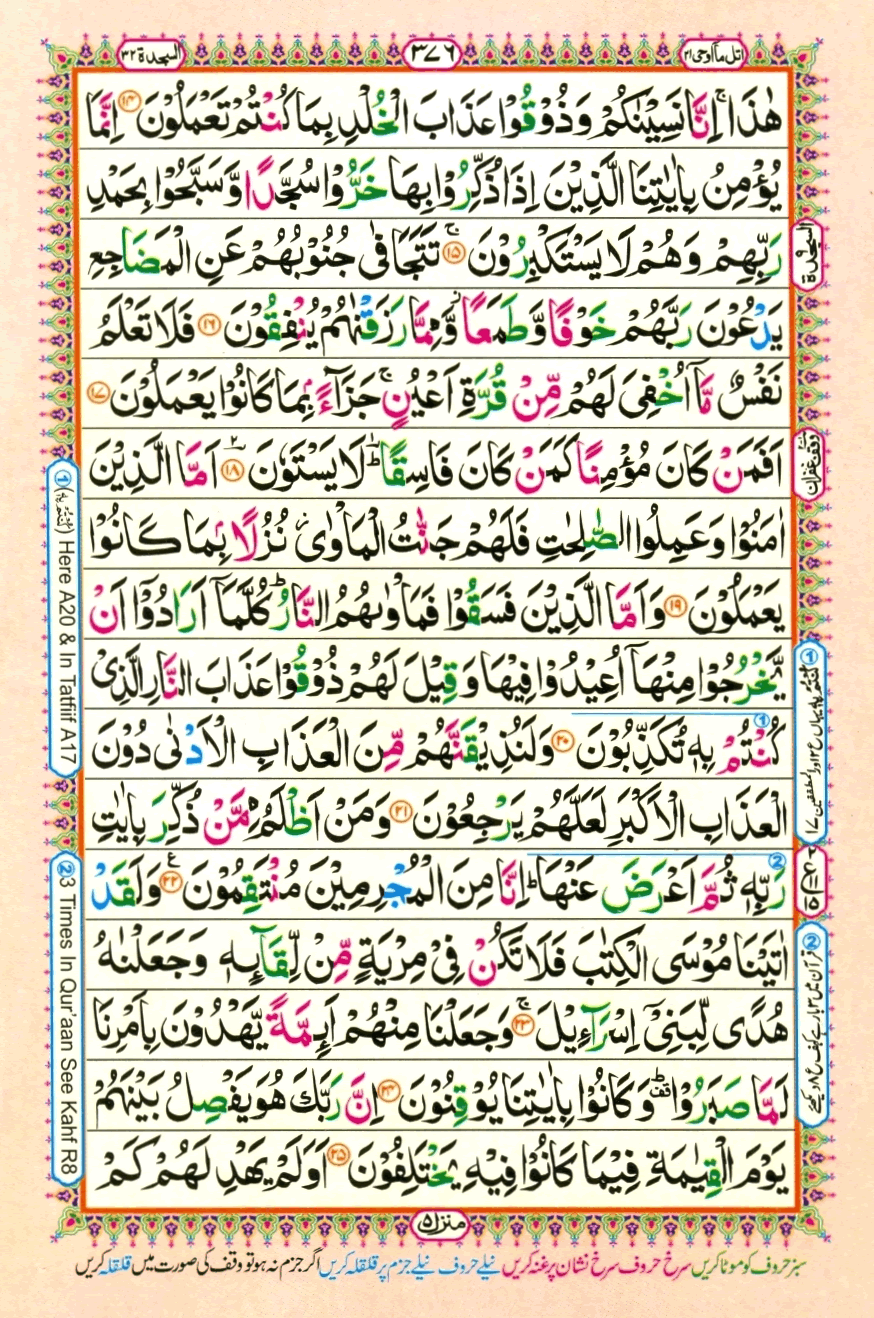 السجدة ٣٢
٣٧٦
اتل ما اوحی ٢١
هٰذَا ۚ اِنَّا نَسِیْنٰكُمْ وَذُوْقُوْا عَذَابَ الْخُلْدِ بِمَا كُنْتُمْ تَعْمَلُوْنَ ۝۱۴ اِنَّمَا
یُؤْمِنُ بِاٰیٰتِنَا الَّذِیْنَ اِذَا ذُكِّرُوْا بِهَا خَرُّوْا سُجَّدًا وَّسَبَّحُوْا بِحَمْدِ
رَبِّهِمْ وَهُمْ لَا یَسْتَكْبِرُوْنَ ۝۱۵ۚ تَتَجَافٰی جُنُوْبُهُمْ عَنِ الْمَضَاجِعِ
السجدة
یَدْعُوْنَ رَبَّهُمْ خَوْفًا وَّطَمَعًا ؗ وَّمِمَّا رَزَقْنٰهُمْ یُنْفِقُوْنَ ۝۱۶ فَلَا تَعْلَمُ
نَفْسٌ مَّاۤ اُخْفِیَ لَهُمْ مِّنْ قُرَّةِ اَعْیُنٍ ۚ جَزَآءًۢ بِمَا كَانُوْا یَعْمَلُوْنَ ۝۱۷
اَفَمَنْ كَانَ مُؤْمِنًا كَمَنْ كَانَ فَاسِقًا ؕ لَا یَسْتَوٗنَ ۝۱۸ اَمَّا الَّذِیْنَ
وقف غفران
اٰمَنُوْا وَعَمِلُوا الصّٰلِحٰتِ فَلَهُمْ جَنّٰتُ الْمَاْوٰی ؗ نُزُلًۢا بِمَا كَانُوْا
یَعْمَلُوْنَ ۝۱۹ وَاَمَّا الَّذِیْنَ فَسَقُوْا فَمَاْوٰىهُمُ النَّارُ ؕ كُلَّمَاۤ اَرَادُوْۤا اَنْ
یَّخْرُجُوْا مِنْهَاۤ اُعِیْدُوْا فِیْهَا وَقِیْلَ لَهُمْ ذُوْقُوْا عَذَابَ النَّارِ الَّذِیْ
كُنْتُمْ بِهٖ تُكَذِّبُوْنَ ۝۲۰ وَلَنُذِیْقَنَّهُمْ مِّنَ الْعَذَابِ الْاَدْنٰی دُوْنَ
الْعَذَابِ الْاَكْبَرِ لَعَلَّهُمْ یَرْجِعُوْنَ ۝۲۱ وَمَنْ اَظْلَمُ مِمَّنْ ذُكِّرَ بِاٰیٰتِ
رَبِّهٖ ثُمَّ اَعْرَضَ عَنْهَا ؕ اِنَّا مِنَ الْمُجْرِمِیْنَ مُنْتَقِمُوْنَ ۝۲۲ وَلَقَدْ
اٰتَیْنَا مُوْسَی الْكِتٰبَ فَلَا تَكُنْ فِیْ مِرْیَةٍ مِّنْ لِّقَآئِهٖ وَجَعَلْنٰهُ
هُدًی لِّبَنِیْۤ اِسْرَآءِیْلَ ۝۲۳ۚ وَجَعَلْنَا مِنْهُمْ اَئِمَّةً یَّهْدُوْنَ بِاَمْرِنَا
لَمَّا صَبَرُوْا ۫ؕ وَكَانُوْا بِاٰیٰتِنَا یُوْقِنُوْنَ ۝۲۴ اِنَّ رَبَّكَ هُوَ یَفْصِلُ بَیْنَهُمْ
یَوْمَ الْقِیٰمَةِ فِیْمَا كَانُوْا فِیْهِ یَخْتَلِفُوْنَ ۝۲۵ اَوَلَمْ یَهْدِ لَهُمْ كَمْ
① Here A20 & In Tatfiif A17
② 3 Times In Qur'aan See Kahf R8
منزل ۵
سبز حروف کو موٹا کریں سرخ حروف سرخ نشان پر غنہ کریں نیلے حروف نیلے جزم پر قلقلہ کریں اگر جزم نہ ہو تو وقف کی صورت میں قلقلہ کریں